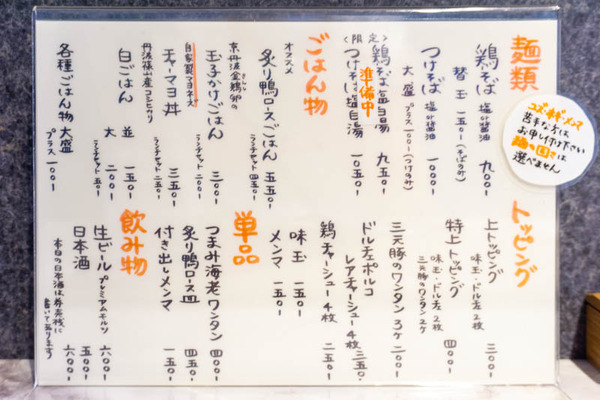 麺類
鶏そば 塩or醤油 九〇〇-
替玉 一五〇-(そばのみ)
つけそば 塩or醤油 一〇〇〇-
大盛 プラス一〇〇-(つけのみ)
〈限定〉
鶏そば塩白湯 九五〇-
つけそば塩白湯 一〇五〇-
準備中
コズ、ネギ、メンマ
苦手な方は
お申し付け下さい
麺の固さは
選べません
ごはん物
オススメ
炙り鴨ロースごはん 五五〇-
ランチセット 四五〇-
京丹波金鶏卵の
玉子かけごはん 三〇〇-
ランチセット 二〇〇-
自家製マヨネーズ
チャーマヨ丼 三五〇-
ランチセット 二五〇-
丹波篠山産コシヒカリ
白ごはん 並 一五〇-
大 二〇〇-
ランチセット 五〇-
各種ごはん物 大盛
プラス 一〇〇-
トッピング
上トッピング 三〇〇-
味玉・ドル左 2枚
特上トッピング 四〇〇-
味玉・ドル左 2枚
三元豚のワンタン 2ケ
三元豚のワンタン 3ケ 二〇〇-
ドルチェポルコ
レアチャーシュー 4枚 三五〇-
鶏チャーシュー 4枚 二五〇-
味玉 一五〇-
メンマ 一五〇-
単品
つまみ海老ワンタン 四〇〇-
炙り鴨ロース皿 四五〇-
付き出しメンマ 一五〇-
飲み物
生ビール プレミアムモルツ 六〇〇-
日本酒 五〇〇-
六〇〇-
本日の日本酒は券売機に
書いてあります